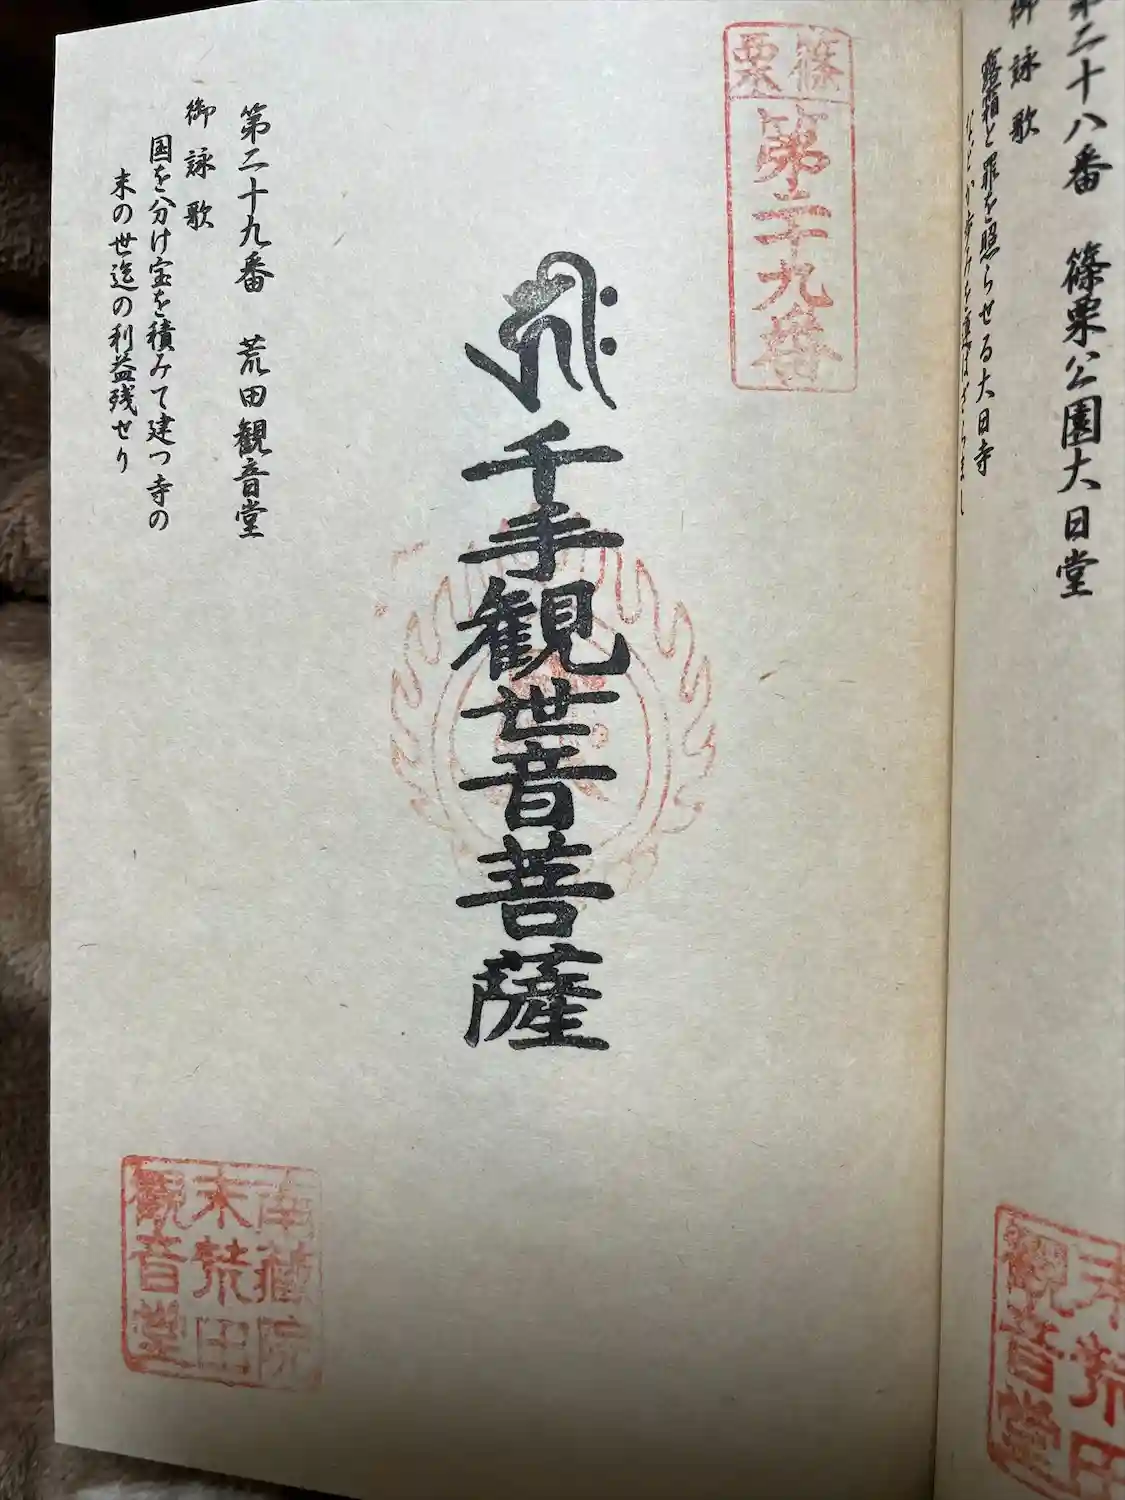 第二十八番 篠栗公園大日堂
御詠歌
露霜と罪を照らせる大日寺
などか歩みを運ばざらまし
末荒田
観音堂
篠栗
第二十九番
千手観世音菩薩
第二十九番 荒田観音堂
御詠歌
国を分け宝を積みて建つ寺の
末の世迄の利益残せり
南蔵院
末荒田
観音堂